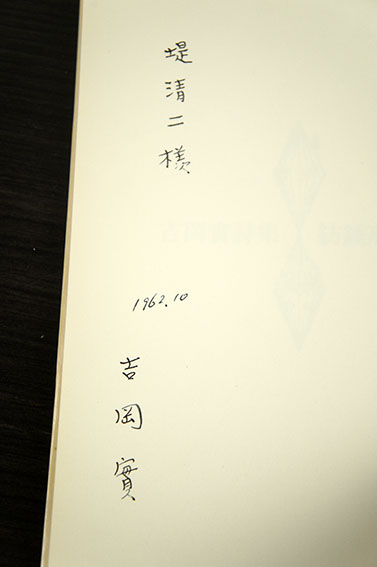 堤清二様
1962.10
吉岡實